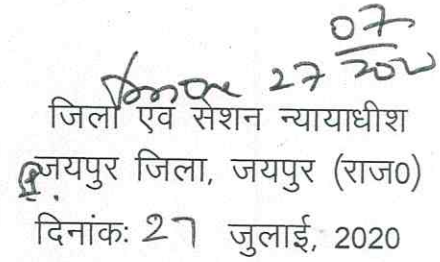 07
27 2020
जिला एवं सेशन न्यायाधीश
जयपुर जिला, जयपुर (राज0)
दिनांक: 27 जुलाई, 2020